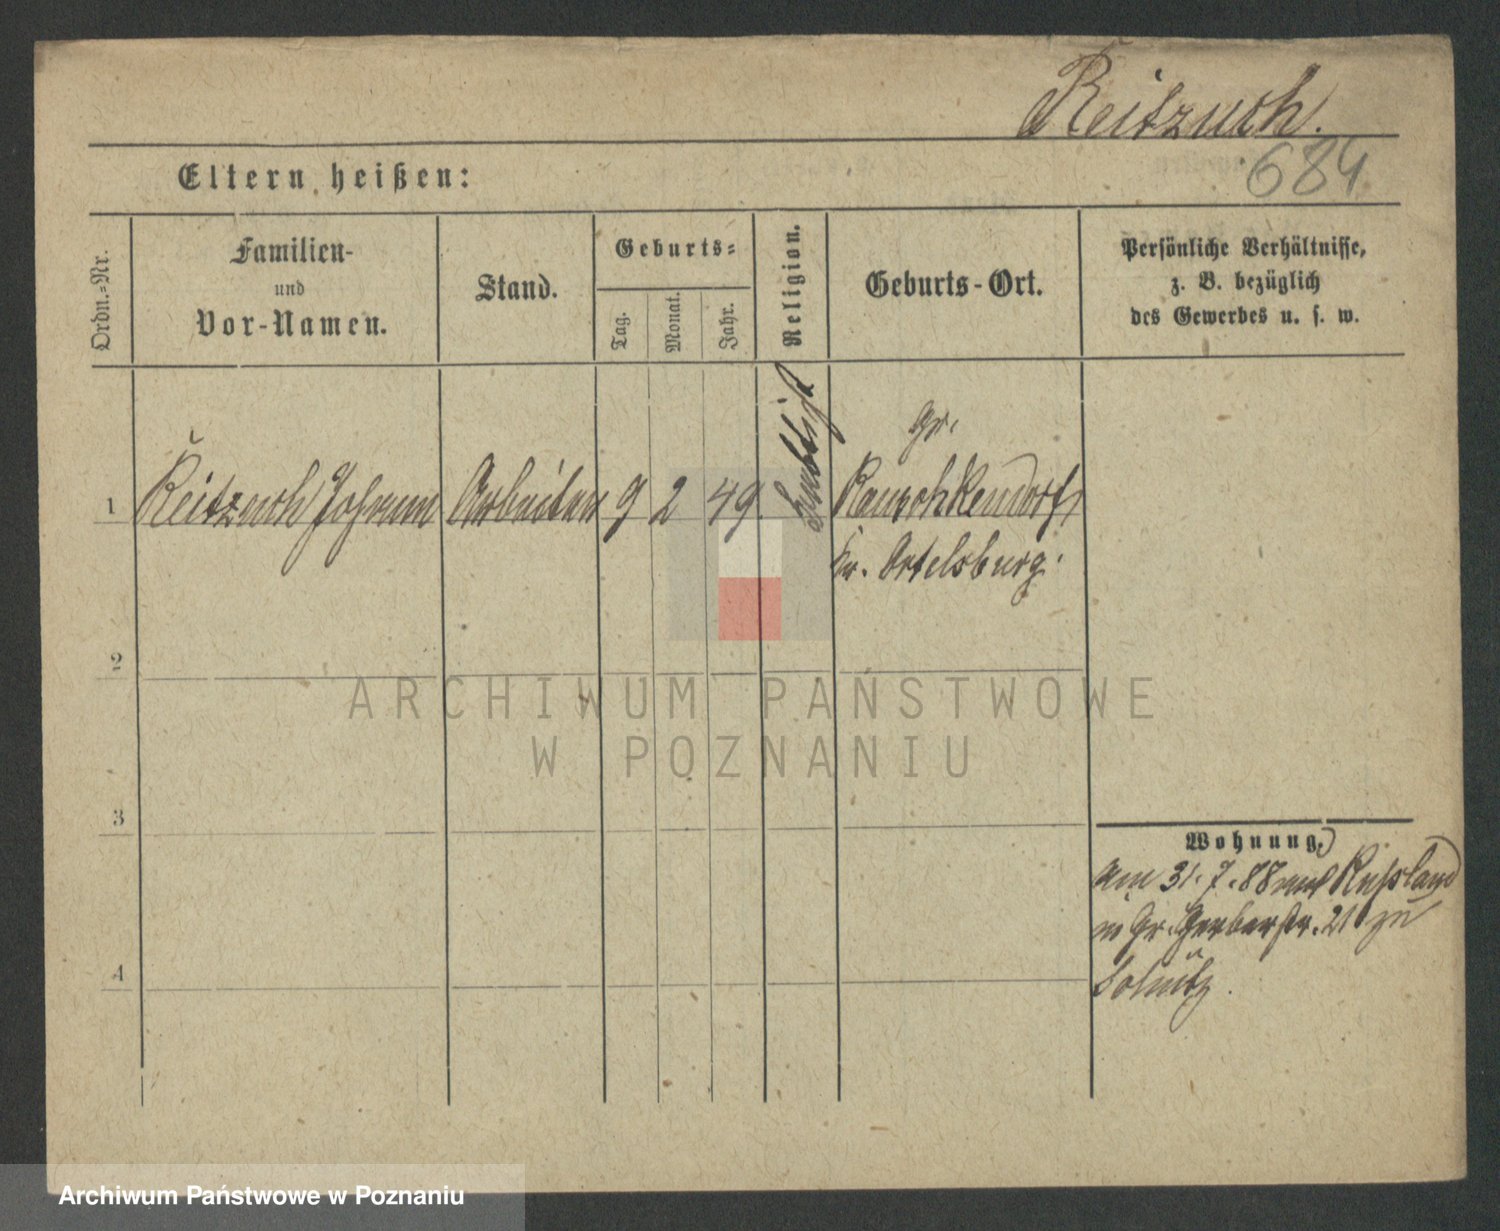 Reitzuch.
684
Eltern heißen:
Ordn.=Nr.
Familien-
und
Vor-Namen.
Stand.
Geburts=
Tag.
Monat.
Jahr.
Religion.
Geburts-Ort.
Persönliche Verhältnisse,
z. B. bezüglich
des Gewerbes u. s. w.
1
Reitzuch Johann
Arbeiter
9
2
49
Gr.
Rauschkendorf
Kr. Ortelsburg.
2
3
4
Wohnung.
Am 31.7.88 aus Russland
in Gr. Gerberstr. 21 zu
ARCHIWUM PAŃSTWOWE
W POZNANIU
Archiwum Państwowe w Poznaniu